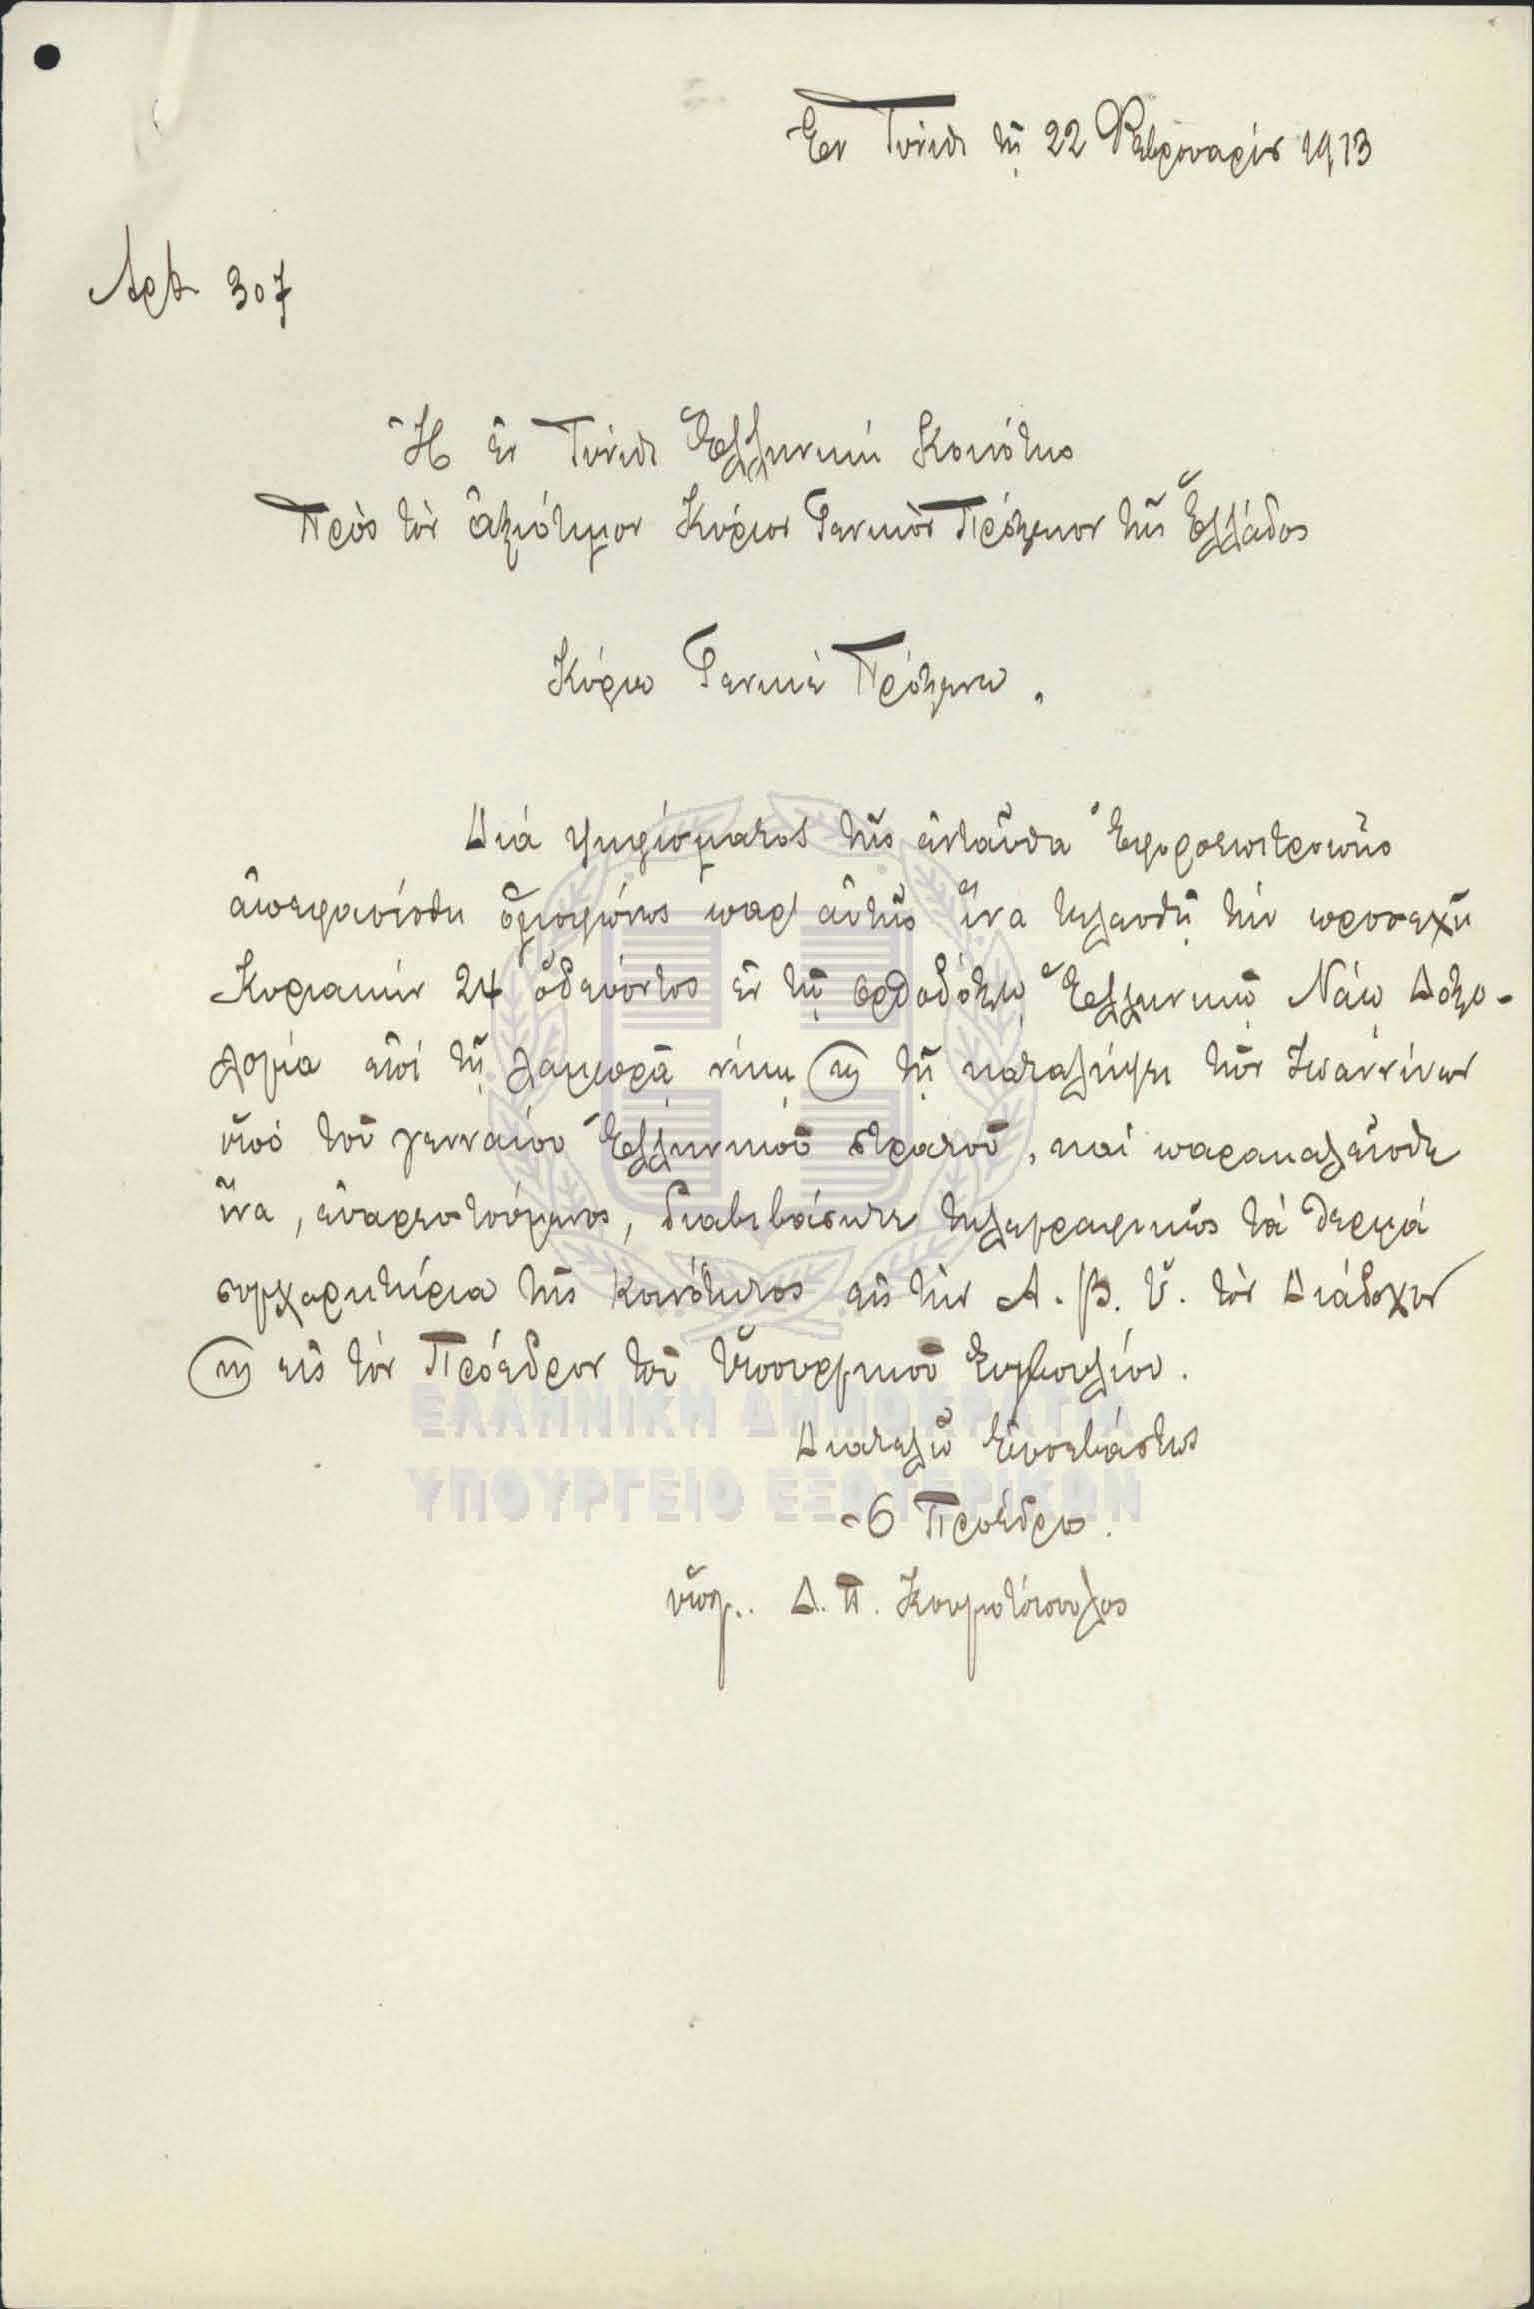 Ἐν Τύνιδι τῇ 22 Φεβρουαρίου 1913
Ἀρθ 307
Ἡ ἐν Τύνιδι Ἑλληνικὴ Κοινότης
Πρὸς τὸν ἀξιότιμον Κύριον Γενικὸν Πρόξενον τῆς Ἑλλάδος
Κύριε Γενικὲ Πρόξενε,
Διά ψηφίσματος τῆς ἐνταῦθα Ἐφοροεπιτροπῆς
ἀπεφασίσθη ὁμοφώνως παρ' αὐτῆς ἵνα τελεσθῇ τὴν προσεχῆ
Κυριακὴν 24 ὁδεύοντος ἐν τῷ ὀρθοδόξῳ Ἑλληνικῷ Ναῷ Δοξο-
λογία ἐπί τῇ λαμπρᾷ νίκῃ κ τῇ καταλήψει τῶν Ἰωαννίνων
ὑπό τοῦ γενναίου Ἑλληνικοῦ στρατοῦ, καί παρακαλεῖσθε
ἵνα, εὐαρεστούμενος, διαβιβάσητε τηλεγραφικῶς τά θερμά
συγχαρητήρια τῆς Κοινότητος εἰς τὴν Α. Β. Υ. τὸν Διάδοχον
κ εἰς τὸν Πρόεδρον τοῦ Ὑπουργικοῦ Συμβουλίου.
Διατελῶ Εὐσεβάστως
Ὁ Πρόεδρος.
ὑπογ.. Δ. Π.
ΕΛΛΗΝΙΚΗ ΔΗΜΟΚΡΑΤΙΑ
ΥΠΟΥΡΓΕΙΟ ΕΞΩΤΕΡΙΚΩΝ